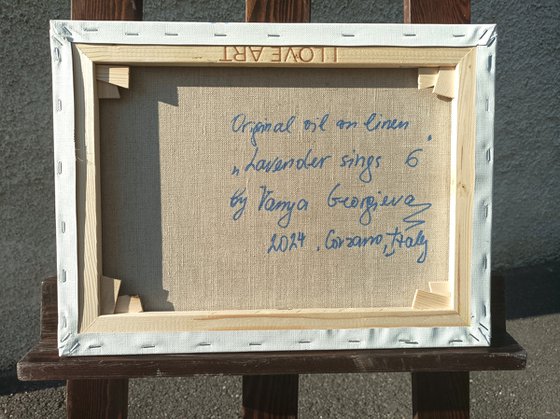 I LOVE ART
Original oil on linen
„Lavender sings 6"
by Vanya Georgieva
2024, Corzano, Italy